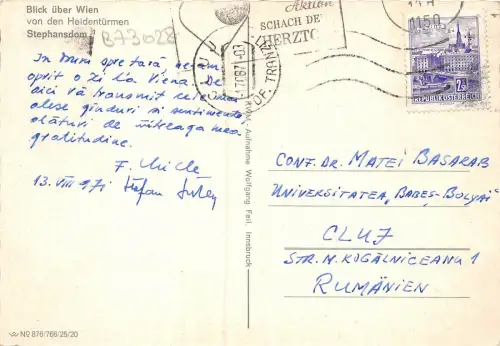 Blick über Wien
von den Heidentürmen
Stephansdom
B73028
În drum spre țară, ne-am
oprit o zi la Viena. De
aici vă transmit cele mai
alese gînduri și sentimente,
alături de întreaga mea
gratitudine.
13. VIII 971
Aktion
SCHACH DE
HERZTO
17.8.71-07
OF. TRANZI
1150
2s
REPUBLIK ÖSTERREICH
Aufnahme Wolfgang Feil, Innsbruck
CONF. DR. MATEI BASARAB
UNIVERSITATEA „BABEȘ-BOLYAI"
CLUJ
STR. M. KOGĂLNICEANU 1
RUMÄNIEN
No 876/766/25/20